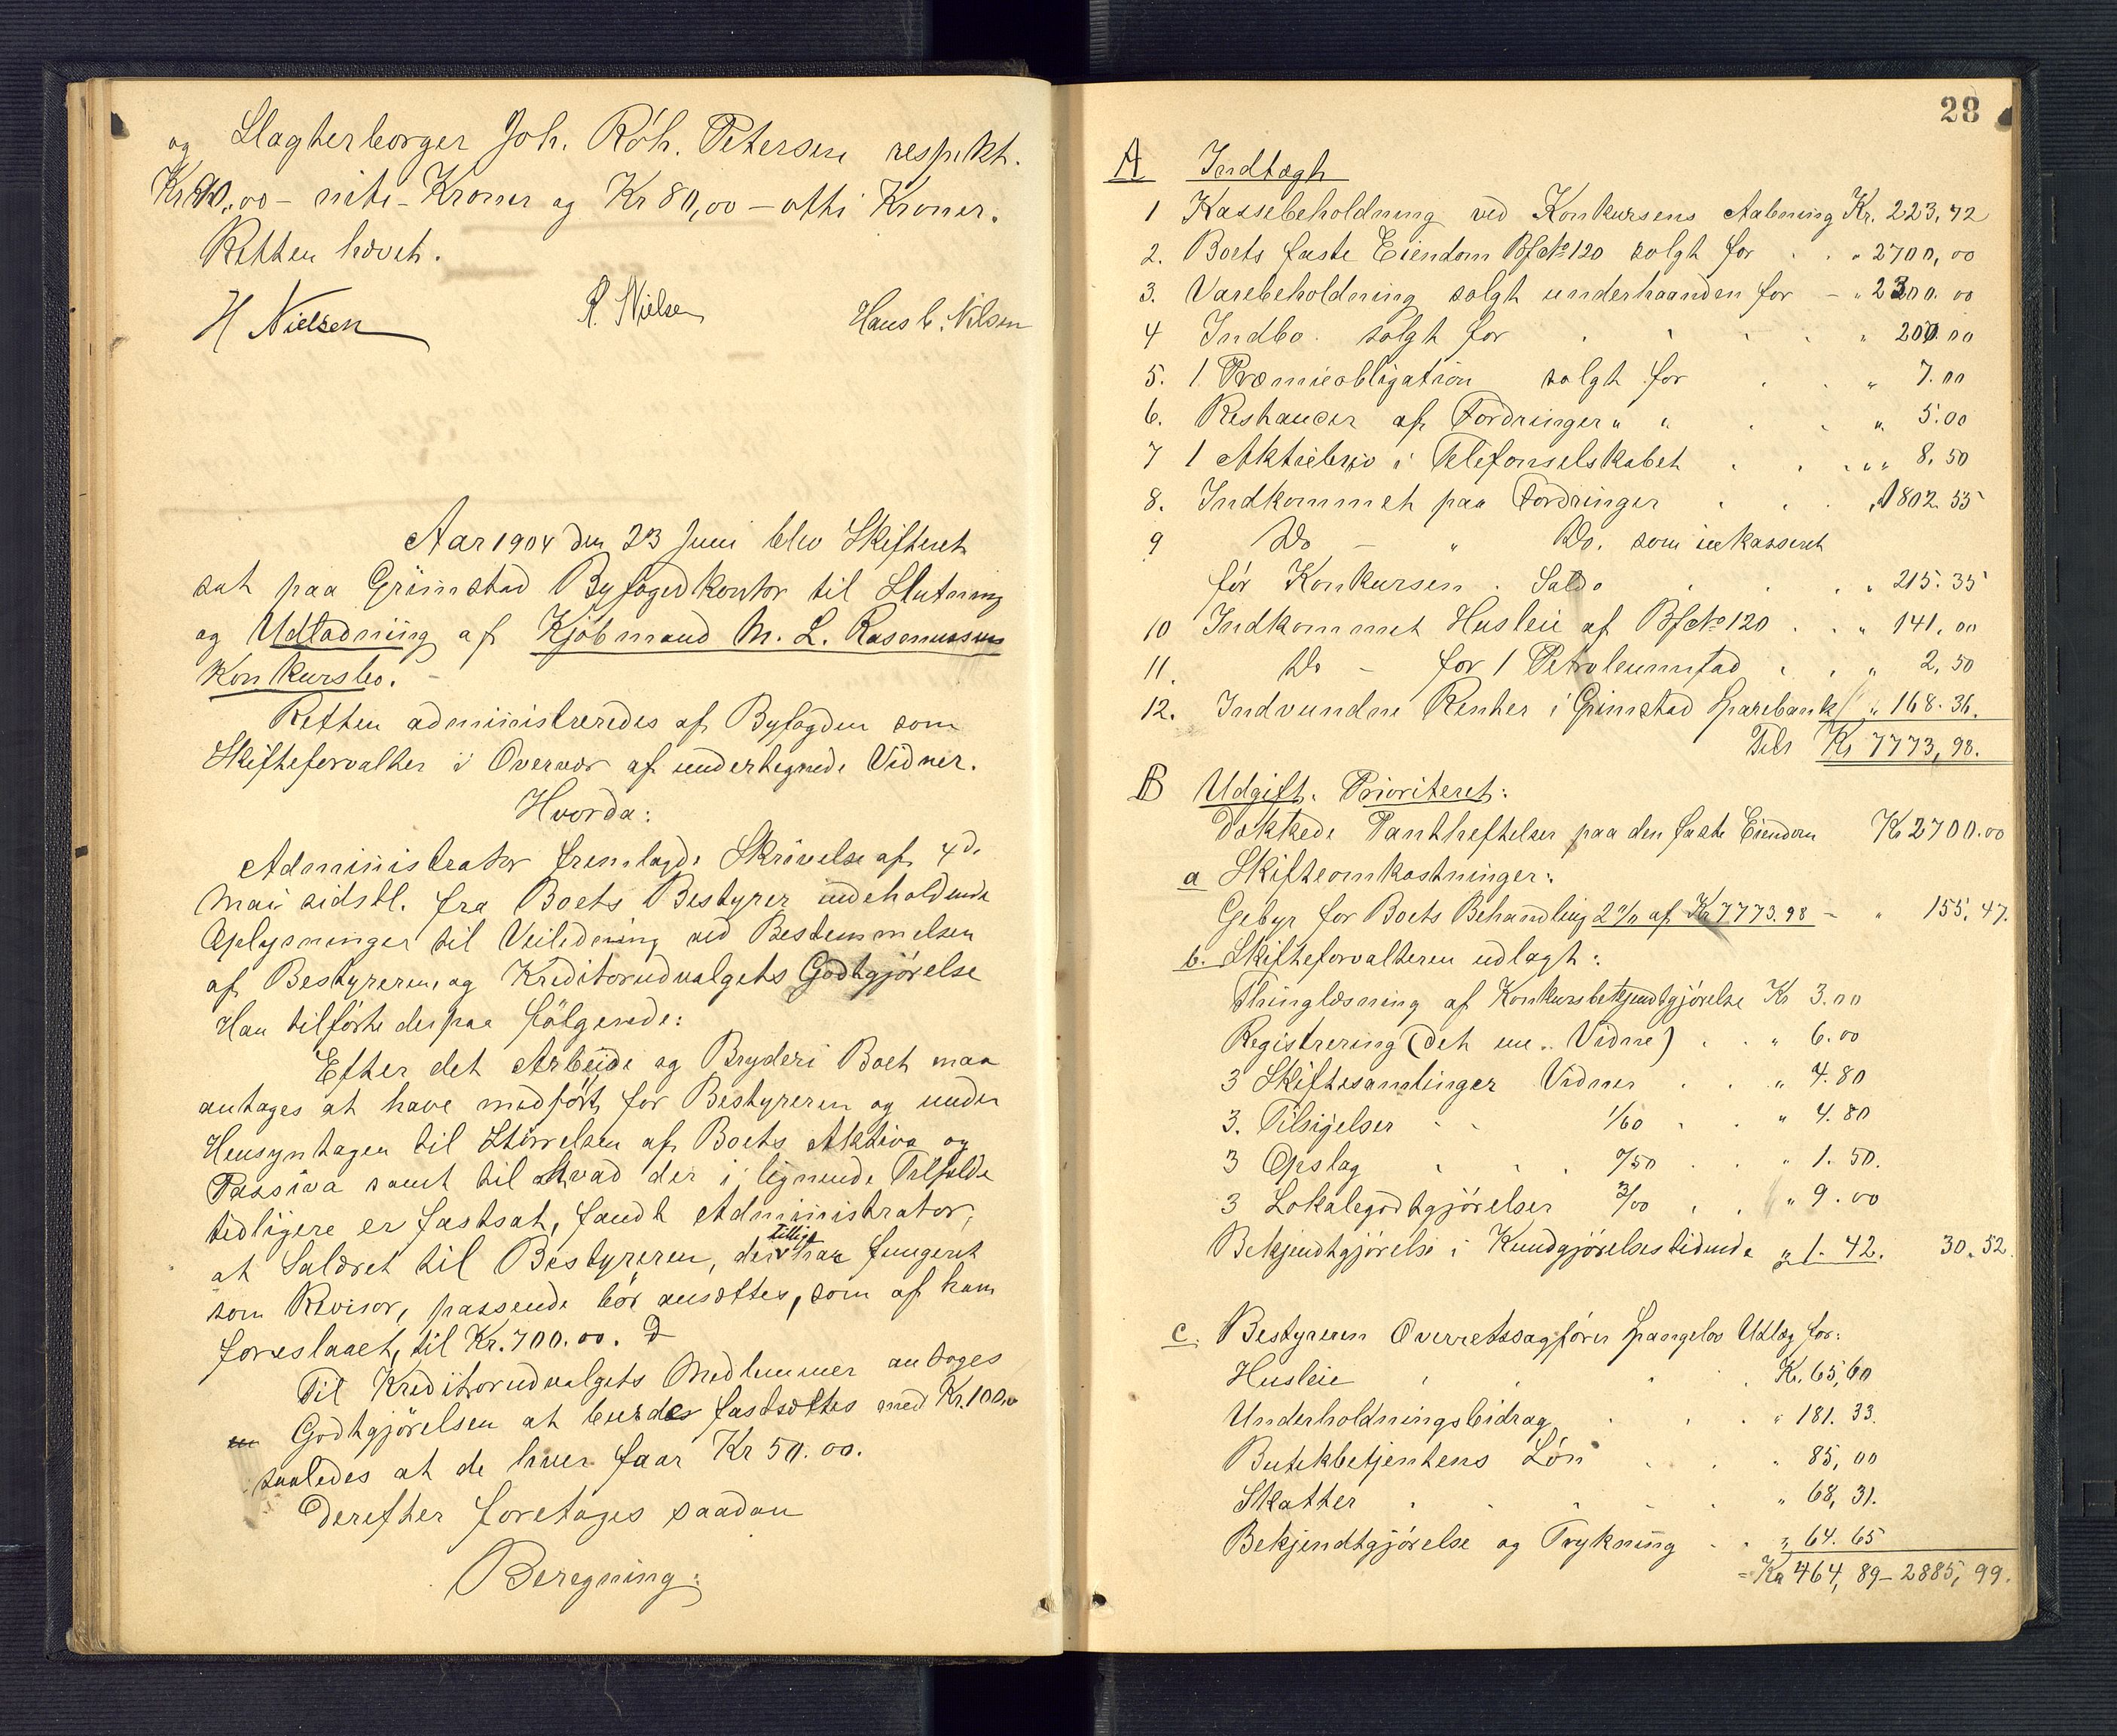 og Slagterborger Joh. Röh. Petersen respekt.
Kr 90,00 – niti – Kroner og Kr 80,00 – otti Kroner.
Retten hævet.
H Nielsen R. Nielsen Hans C. Nilsen
Aar 1904 den 23 Juni blev Skifteret
sat paa Grimstad Byfogedkontor til Slutning
og Udlodning af Kjøbmand M. L. Rasmussens
Konkursbo.
Retten administreredes af Byfogden som
Skifteforvalter i Overvær af undertegnede Vidner.
Hvorda:
Administrator fremlagde Skrivelse af 4d.
Mai sidstl. fra Boets Bestyrer indeholdende
Oplysninger til Veiledning ved Bestemmelsen
af Bestyrerens og Kreditorudvalgets Godtgjörelse
Han tilförte derpaa fölgende:
Efter det Arbeide og Bryderi Boet maa
antages at have medfört for Bestyreren og under
Hensyntagen til Störrelsen af Boets Aktiva og
Passiva samt til hvad der i lignende Tilfælde
tidligere er fastsat, fandt Administrator,
at Salæret til Bestyreren, der tillige har fungeret
som Revisor, passende bör ansættes, som af ham
foreslaaet, til Kr. 700.00.
Til Kreditorudvalgets Medlemmer antoges
Godtgjörelsen at burde fastsættes med Kr. 100,00
saaledes at de hver faar Kr 50.00.
Derefter foretoges saadan
Beregning:
28
A Indtægt
1 Kassebeholdning ved Konkursens Aabning Kr. 223,72
2. Boets faste Eiendom Bf№ 120 solgt for . . " 2700,00
3. Varebeholdning solgt underhaanden for – " 2300.00
4 Indbo solgt for . . . . " 200.00
5. 1 Præmieobligation solgt for . . " 7.00
6. Restancer af Fordringer " " . . " 5.00
7 1 Aktiebrev i Telefonselskabet . . " " 8,50
8. Indkommet paa Fordringer . . . " 1802.55
9 Do – " Do. som inkasseret
för Konkursen. Saldo . . . " 215.35
10 Indkommet Husleie af Bf№ 120 . . " 141,00
11. Do – for 1 Petroleumsfad . . " 2,50
12. Indvundne Renter i Grimstad Sparebank " 168.36.
Tils Kr 7773,98.
B Udgift. Prioriteret:
Dækkede Pantheftelser paa den faste Eiendom Kr 2700.00
a Skifteomkostninger:
Gebyr for Boets Behandling 2% af Kr 7773.98 – " 155,47.
b. Skifteforvalteren udlagt:
Thinglæsning af Konkursbekjendtgjörelse Kr 3.00
Registrering (det ene Vidne) . . " 6.00
3 Skiftesamlinger Vidner . . " 4.80
3. Tilsigelser . . 1/60 . . " 4.80
3 Opslag . . . 0/50 . . " 1.50.
3 Lokalegodtgjörelser 3/00 . . " 9.00
Bekjendtgjörelse i Kundgjörelsestidende " 1.42. 30.52.
c. Bestyreren Overretssagförer Spangelos Udlæg for:
Husleie . . . . Kr. 65,60
Underholdningsbidrag . . . " 181.33.
Butikbetjentens Lön . . . " 85,00
Skatter . . . . . " 68,31.
Bekjendtgjörelse og Trykning . . " 64.65
= Kr 464,89 – 2885,99.